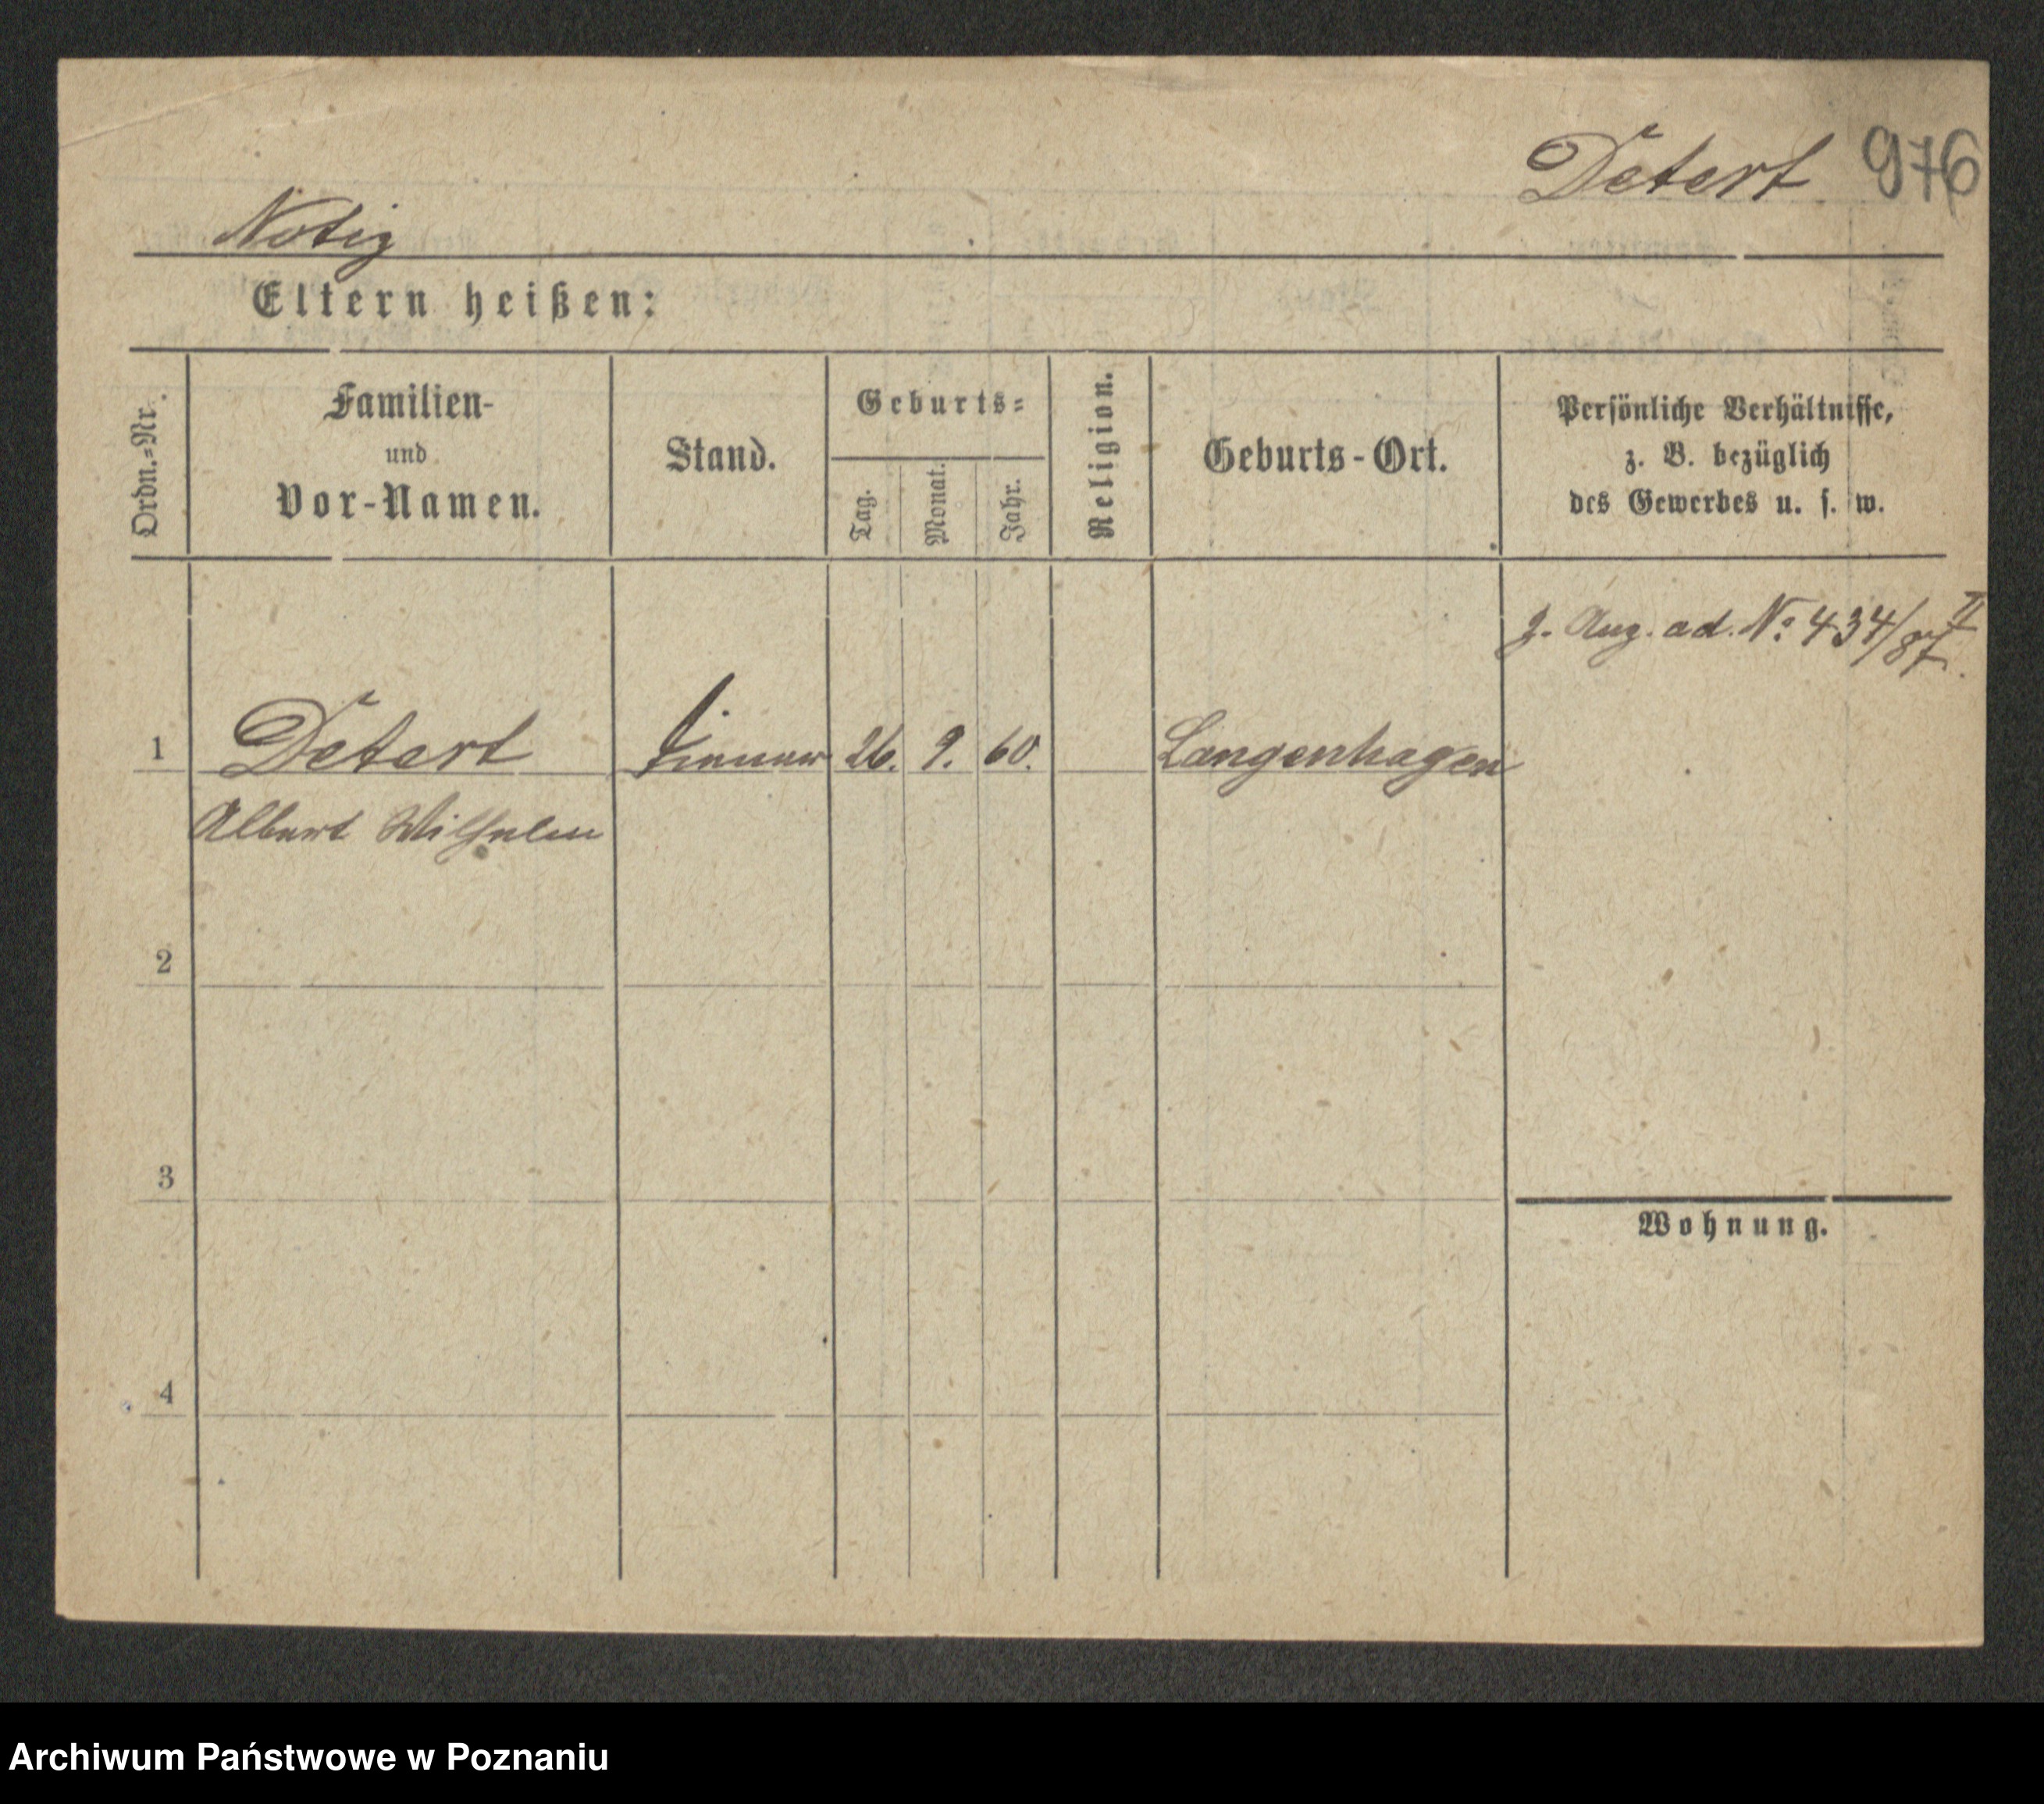 Detert 976
Notiz
Eltern heißen:
Ordn.=Nr.
Familien-
und
Vor-Namen.
Stand.
Geburts=
Tag.
Monat.
Jahr.
Religion.
Geburts-Ort.
Persönliche Verhältnisse,
z. B. bezüglich
des Gewerbes u. s. w.
z. Ang. ad. No. 434/87 II
1 Detert 26. 9. 60. Langenhagen
Albert Wilhelm
2
3
Wohnung.
4
Archiwum Państwowe w Poznaniu